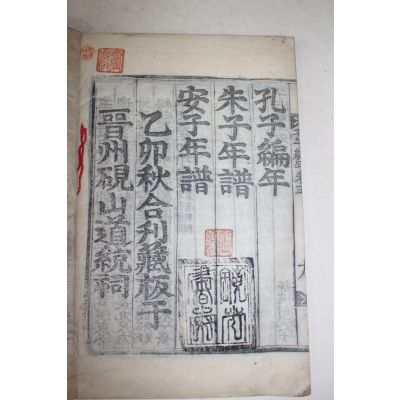 孔子編年
朱子年譜
安子年譜
乙卯秋合刊藏版于
晉州硯山道統祠